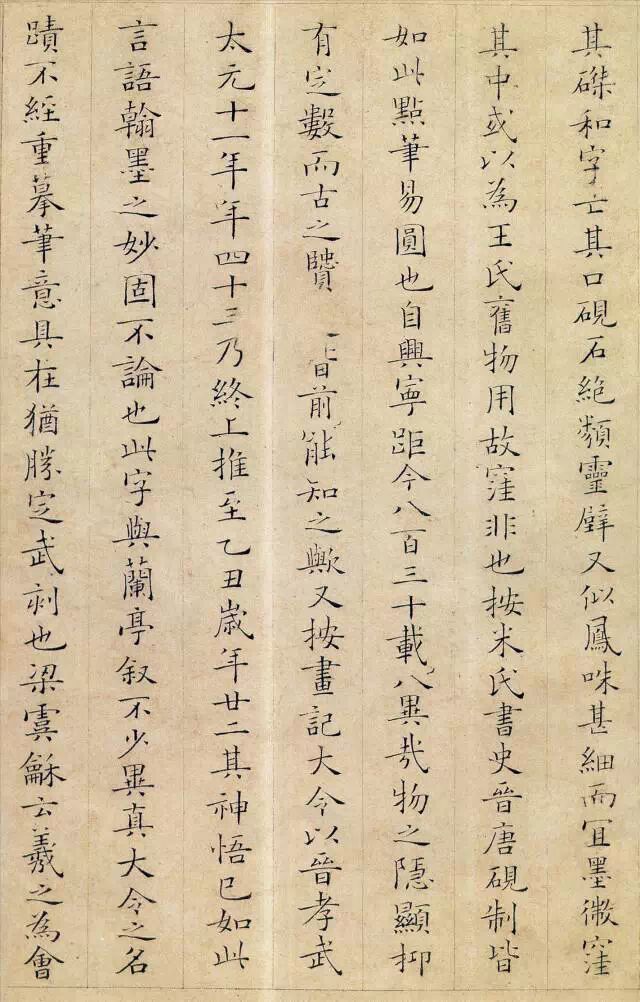 其磔和字亡其口硯石絶類靈璧又似鳳咮甚細而宜墨微窪
其中或以為王氏舊物用故窪非也按米氏書史晉唐硯制皆
如此點筆易圓也自興寧距今八百三十載異哉物之隱顯抑
有定數而古之賢前能知之歟又按畫記大令以晉孝武
太元十一年年四十三乃終上推至乙丑歲年廿二其神悟已如此
言語翰墨之妙固不論也此字與蘭亭叙不少異真大令之名
蹟不經重摹筆意具在猶勝定武刻也梁虞龢云羲之為會